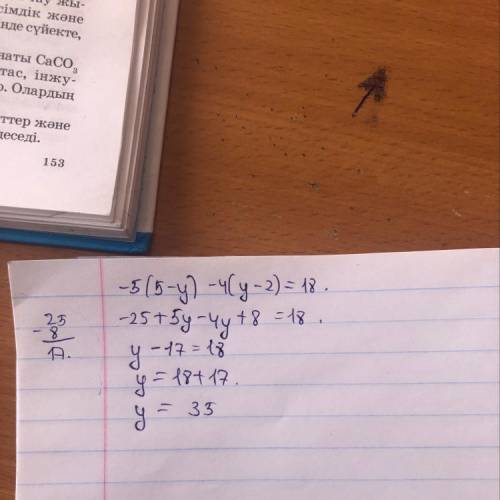 сімдік және
інде сүйекте,
наты CaCO₃
тас, інжу-
р. Олардың
ттер және
десені.
153
-5(5-y) -4(y-2)=18.
-25+5y-4y+8 =18.
y-17=18
y=18+17.
y= 35
-25
8
17.